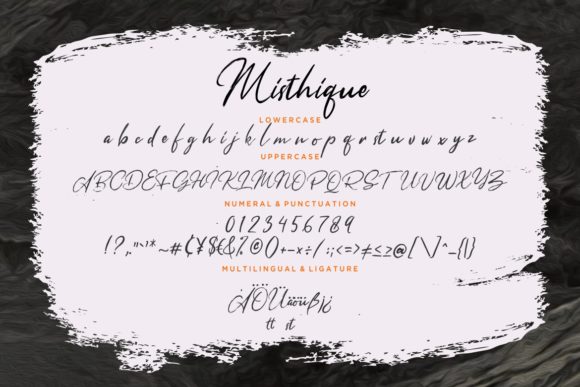 Misthique
LOWERCASE
a b c d e f g h i j k l m n o p q r s t u v w x y z
UPPERCASE
A B C D E F G H I J K L M N O P Q R S T U V W X Y Z
NUMERAL & PUNCTUATION
0 1 2 3 4 5 6 7 8 9
!?,."“`'*~#₡¥$€&%@©()+-×÷/:;<=>≠≤≥@[\]^_{|}
MULTILINGUAL & LIGATURE
ÄÖÜäöüß¡¿
tt st